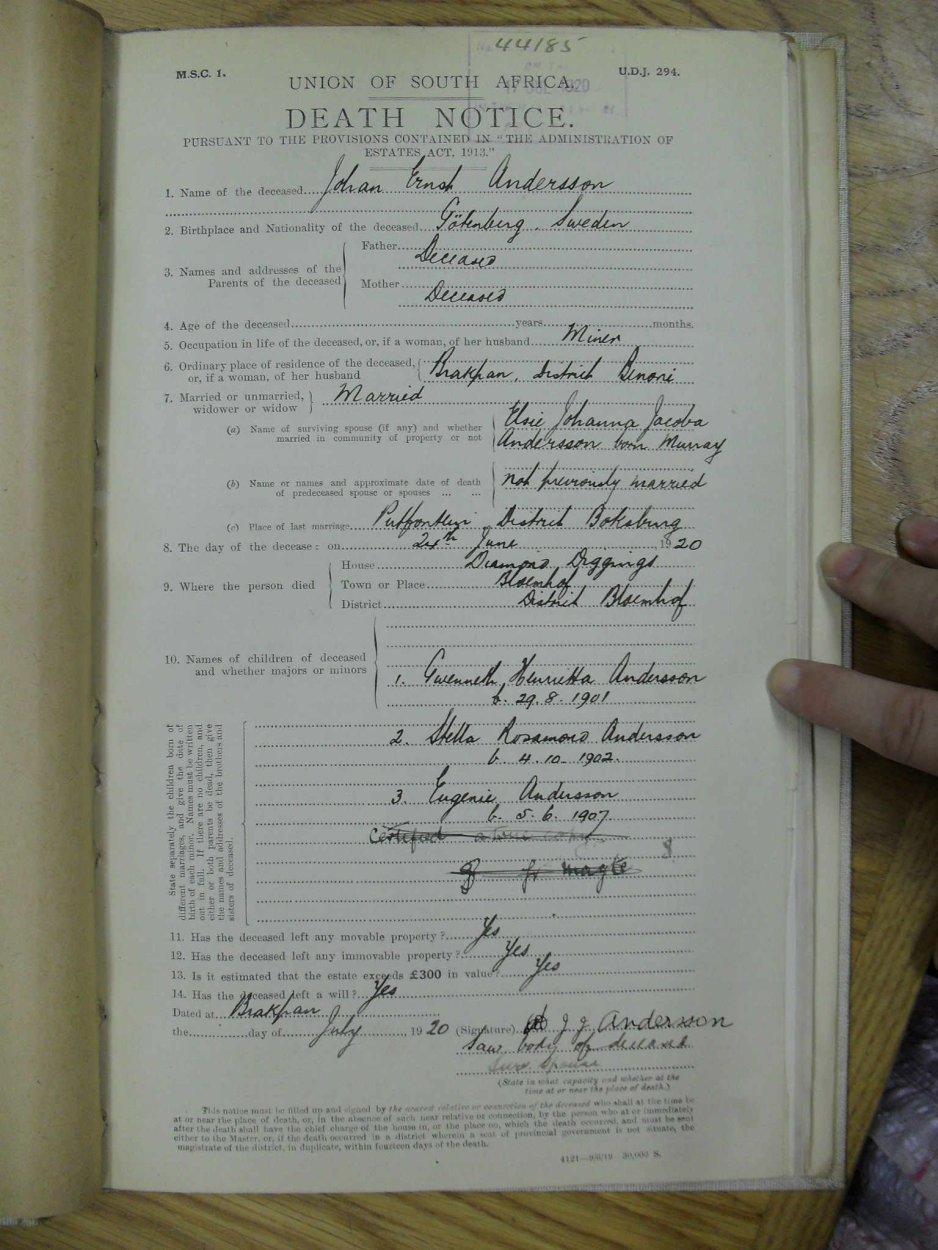 44185
M.S.C. 1.
U.D.J. 294.
UNION OF SOUTH AFRICA.
1920
DEATH NOTICE.
PURSUANT TO THE PROVISIONS CONTAINED IN "THE ADMINISTRATION OF
ESTATES ACT, 1913."
1. Name of the deceased Johan Ernst Andersson
2. Birthplace and Nationality of the deceased Götenberg. Sweden
3. Names and addresses of the Parents of the deceased
Father Deceased
Mother Deceased
4. Age of the deceased years months.
5. Occupation in life of the deceased, or, if a woman, of her husband Miner
6. Ordinary place of residence of the deceased,
or, if a woman, of her husband Brakpan, district Benoni
7. Married or unmarried,
widower or widow Married
(a) Name of surviving spouse (if any) and whether
married in community of property or not
Elsie Johanna Jacoba
Andersson born Murray
(b) Name or names and approximate date of death
of predeceased spouse or spouses ... ...
not previously married
(c) Place of last marriage Putfontein District Boksburg
8. The day of the decease: on 24th June 1920
9. Where the person died
House Diamond Diggings
Town or Place Bloemhof
District District Bloemhof
10. Names of children of deceased
and whether majors or minors
1. Gwenneth Henrietta Andersson
b. 29.8.1901
2. Stella Rosamond Andersson
b. 4.10.1902.
3. Eugenie Andersson
b. 5.6.1907.
Certified a true copy
for Magte
State separately the children born of
different marriages, and give the date of
birth of each minor. Names must be written
out in full. If there are no children, and
either or both parents be dead, then give
the names and addresses of the brothers and
sisters of deceased.
11. Has the deceased left any movable property? Yes
12. Has the deceased left any immovable property? Yes
13. Is it estimated that the estate exceeds £300 in value? Yes
14. Has the deceased left a will? Yes
Dated at Brakpan
the day of July 1920
(Signature). J J Andersson
Saw body of deceased
Surv. Spouse
(State in what capacity and whether at the
time at or near the place of death.)
This notice must be filled up and signed by the nearest relative or connection of the deceased who shall at the time be
at or near the place of death, or, in the absence of such near relative or connection, by the person who at or immediately
after the death shall have the chief charge of the house in, or the place on, which the death occurred, and must be sent
either to the Master, or, if the death occurred in a district wherein a seat of provincial government is not situate, the
magistrate of the district, in duplicate, within fourteen days of the death.
4121—9/6/19—30,000 S.